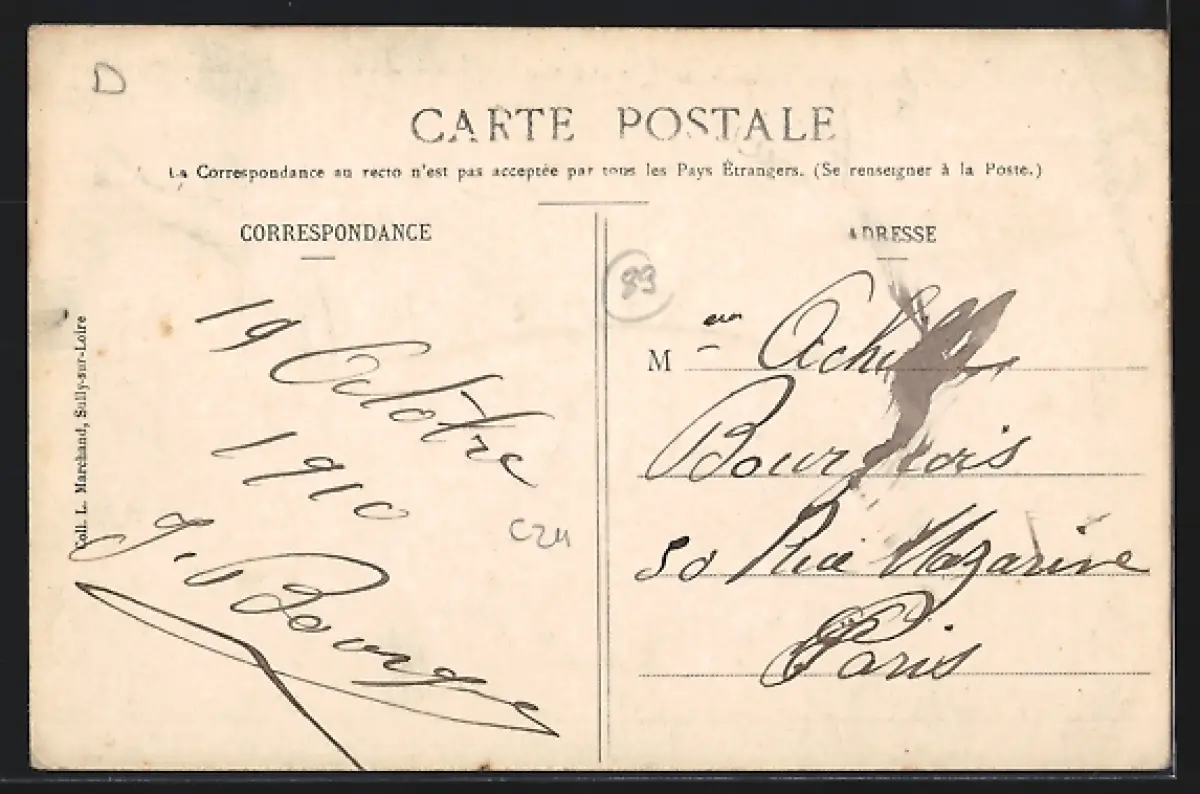 D
CARTE POSTALE
La Correspondance au recto n'est pas acceptée par tous les Pays Étrangers. (Se renseigner à la Poste.)
CORRESPONDANCE
19 Octobre
1910
J. Bourge
C24
Coll. L. Marchand, Sully-sur-Loire
ADRESSE
89
M eur Achille
Bourgeois
50 Rue Mazarine
Paris